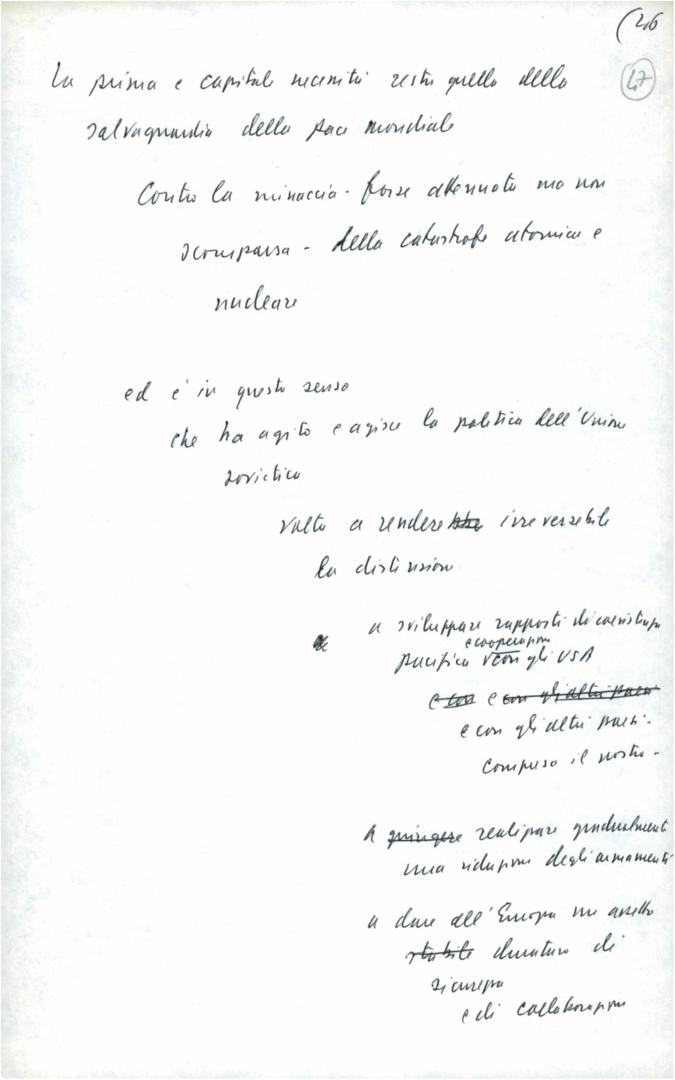 (46
47
La prima e capitale necessità resta quella della
salvaguardia della pace mondiale
Contro la minaccia - forse attenuata ma non
scomparsa - della catastrofe atomica e
nucleare
ed è in questo senso
che ha agito e agisce la politica dell'Unione
sovietica
volta a rendere irreversibile
la distensione
a sviluppare rapporti di coesistenza
e cooperazione
pacifica con gli USA
e con e con gli altri paesi
e con gli altri paesi -
compreso il nostro -
a realizzare gradualmente
una riduzione degli armamenti
a dare all'Europa un assetto
stabile duraturo di
sicurezza
e di collaborazione